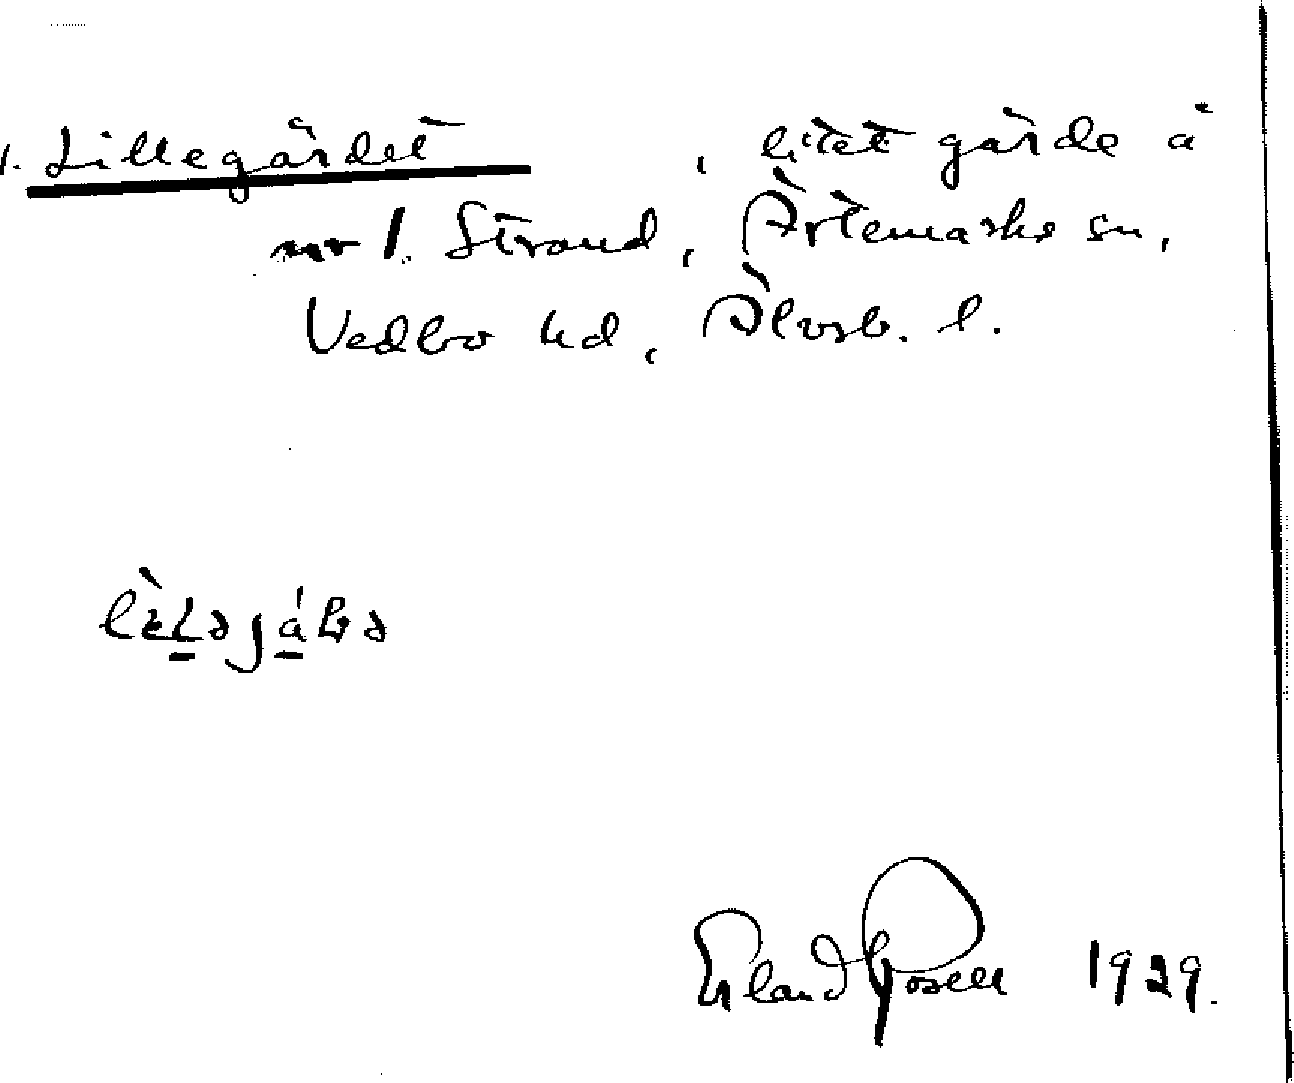 1. Lillegärdet, litet gärde å
nr 1. Strand, Ärtemarks sn,
Vedbo hd, Älvsb. l.
Erland Rosell 1929.